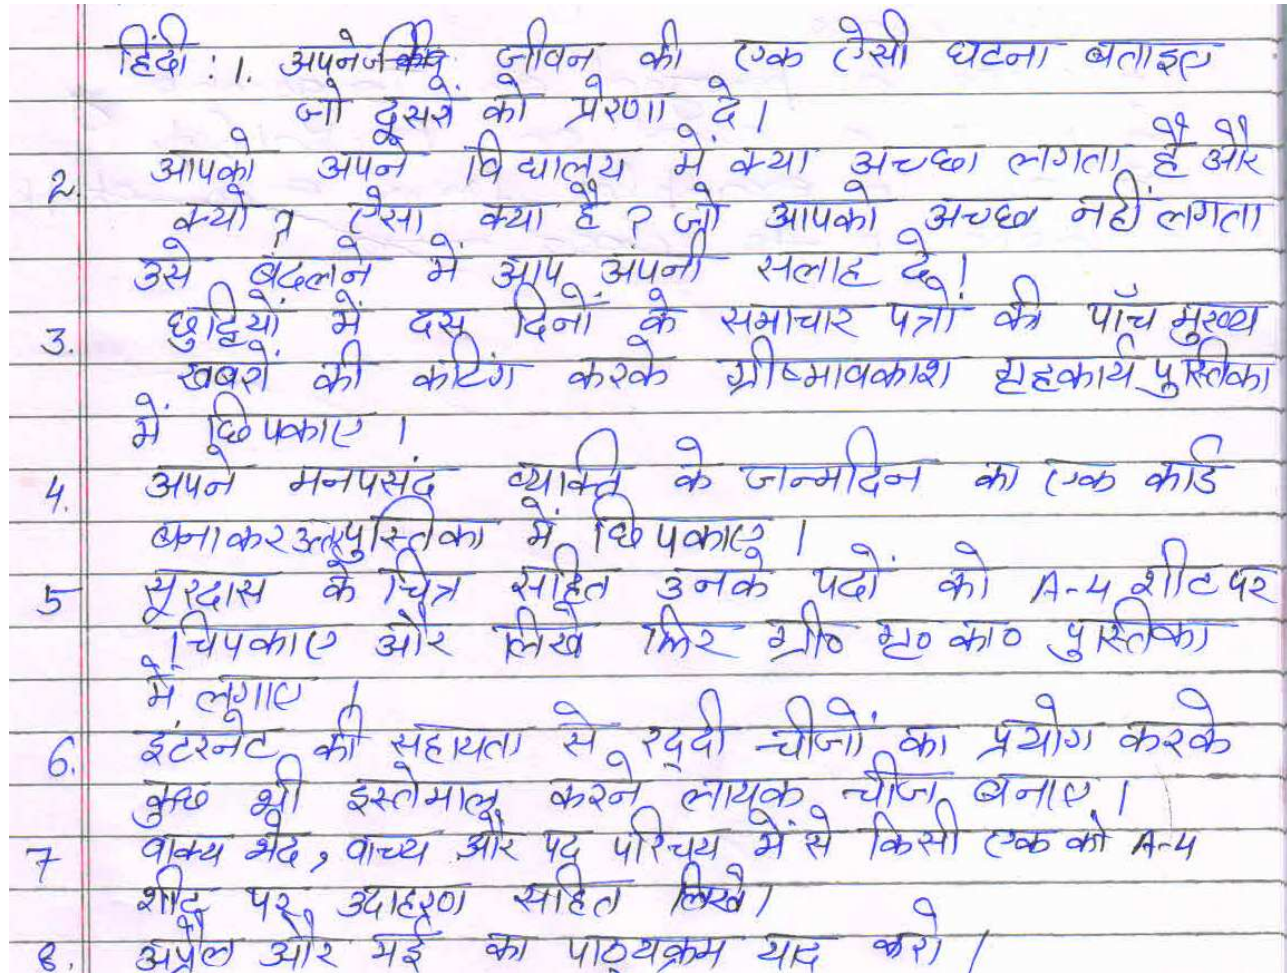 हिंदी : 1. अपने जीवन की एक ऐसी घटना बताइए
जो दूसरों को प्रेरणा दे।
2. आपको अपने विद्यालय में क्या अच्छा लगता है और
क्यों ? ऐसा क्या है ? जो आपको अच्छा नहीं लगता
उसे बदलने में आप अपनी सलाह दे।
3. छुट्टियों में दस दिनों के समाचार पत्रों की पाँच मुख्य
खबरों की कटिंग करके ग्रीष्मावकाश गृहकार्य पुस्तिका
में छिपकाए ।
4. अपने मनपसंद व्यक्ति के जन्मदिन का एक कार्ड
बनाकर पुस्तिका में छिपकाए ।
5 सूरदास के चित्र सहित उनके पदों को A-4 शीट पर
चिपकाए और लिखे फिर ग्री० गृ० का० पुस्तिका
में लगाए ।
6. इंटरनेट की सहायता से रद्दी चीजों का प्रयोग करके
कुछ भी इस्तेमाल करने लायक चीज बनाए ।
7 वाक्य भेद, वाच्य और पद परिचय में से किसी एक को A-4
शीट पर उदाहरण सहित लिखे।
8. अप्रैल और मई का पाठ्यक्रम याद करो ।